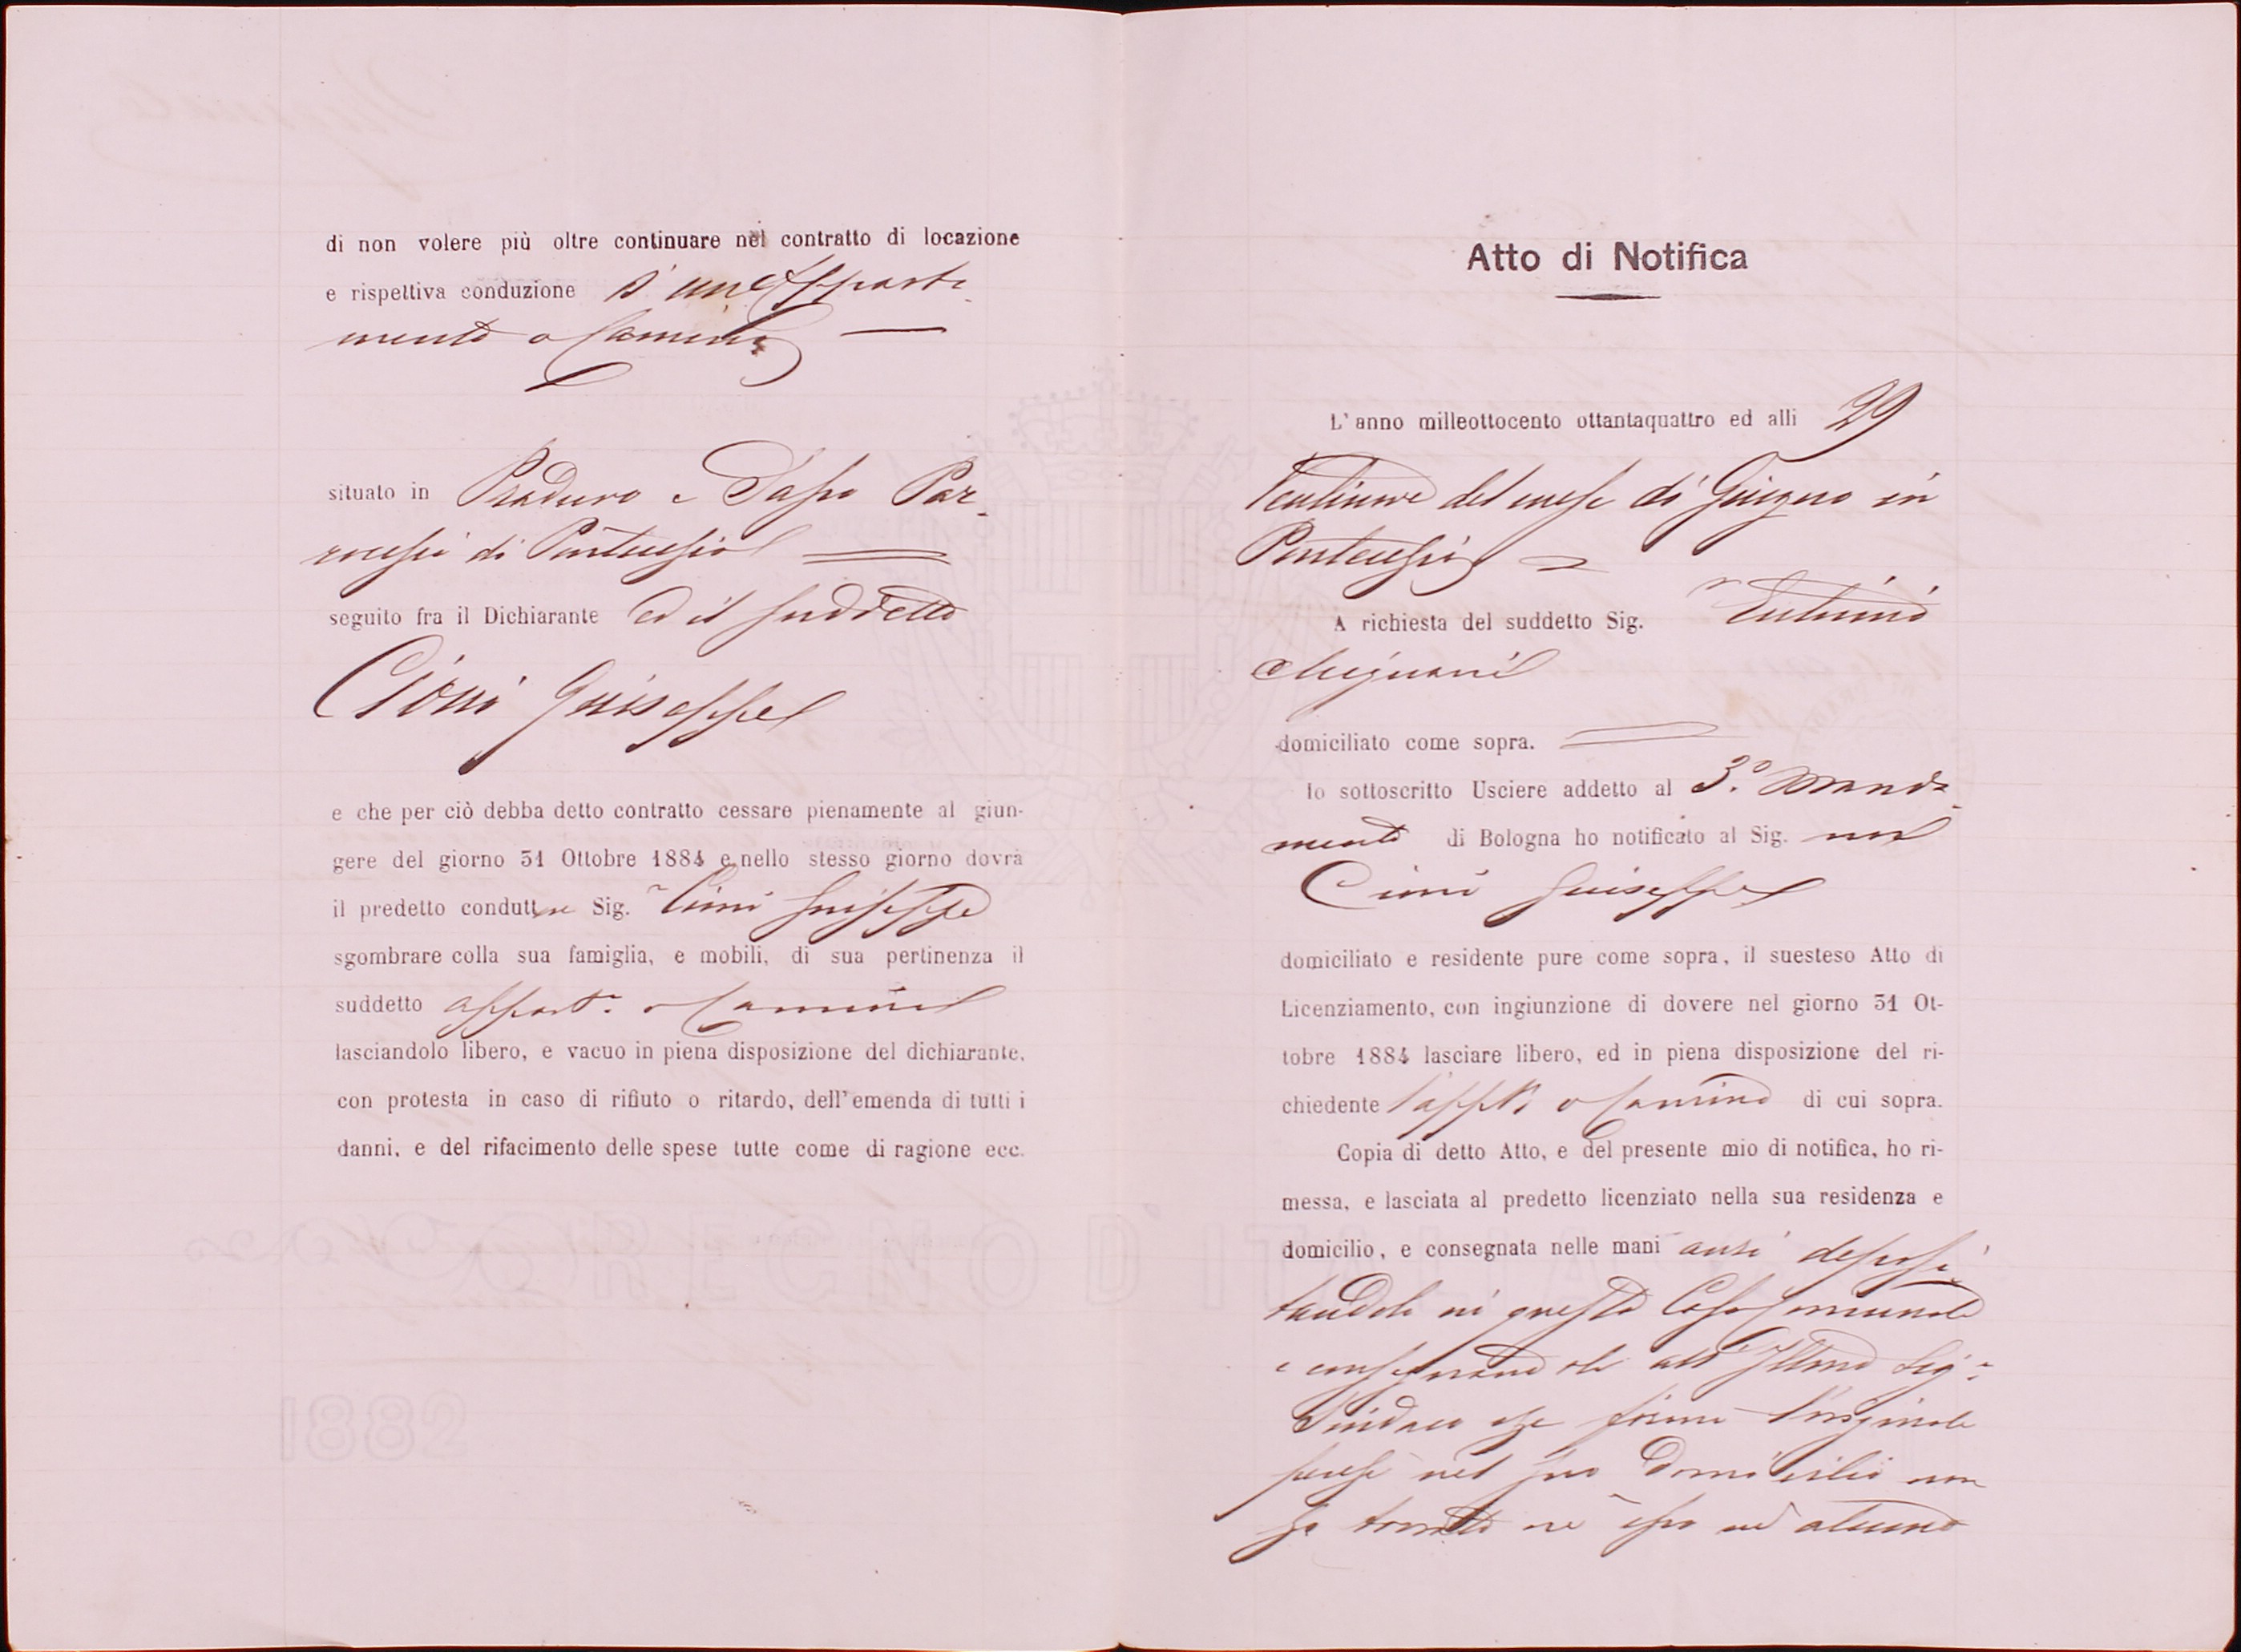 di non volere più oltre continuare nel contratto di locazione
e rispettiva conduzione d'un Apparta-
mento a Camino
situato in Praduro e Sasso Par-
rocchia di Pontecchio
seguito fra il Dichiarante ed il suddetto
Cioni Giuseppe
e che per ciò debba detto contratto cessare pienamente al giun-
gere del giorno 31 Ottobre 1884 e nello stesso giorno dovrà
il predetto conduttore Sig.r Cioni Giuseppe
sgombrare colla sua famiglia, e mobili, di sua pertinenza il
suddetto appart.o a Camino
lasciandolo libero, e vacuo in piena disposizione del dichiarante,
con protesta in caso di rifiuto o ritardo, dell'emenda di tutti i
danni, e del rifacimento delle spese tutte come di ragione ecc.
Atto di Notifica
L'anno milleottocento ottantaquattro ed alli 29
Ventinove del mese di Giugno in
Pontecchio
A richiesta del suddetto Sig.r Antonio
Mignani
domiciliato come sopra.
Io sottoscritto Usciere addetto al 3.° Manda-
mento di Bologna ho notificato al Sig.
Cioni Giuseppe
domiciliato e residente pure come sopra, il suesteso Atto di
Licenziamento, con ingiunzione di dovere nel giorno 31 Ot-
tobre 1884 lasciare libero, ed in piena disposizione del ri-
chiedente l'app.to a Camino di cui sopra.
Copia di detto Atto, e del presente mio di notifica, ho ri-
messa, e lasciata al predetto licenziato nella sua residenza e
domicilio, e consegnata nelle mani anzi deposi-
tandola in questa Casa Comunale
e consegnandola all'Illmo Sig.r
Sindaco che firma l'originale
perchè nel suo domicilio non
ho trovato nè esso nè alcuno
REGNO D'ITALIA
1882